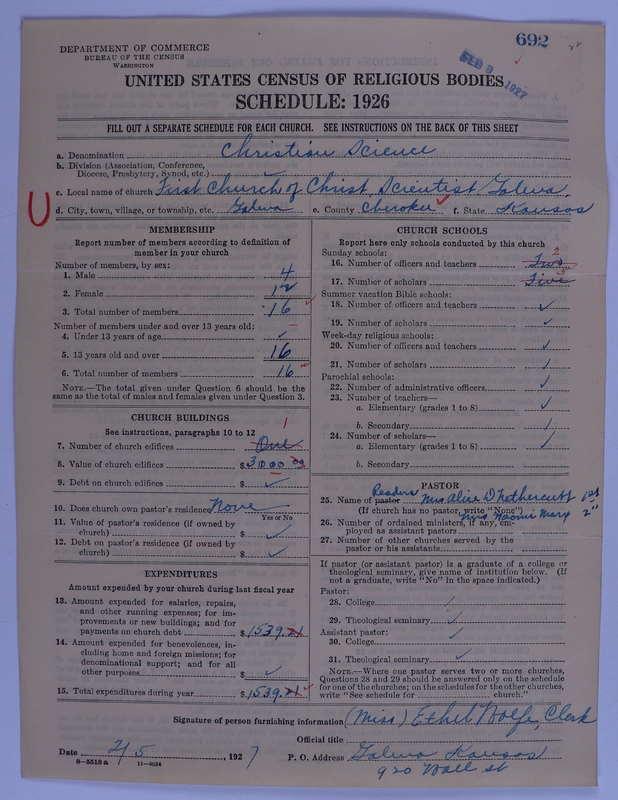 692
DEPARTMENT OF COMMERCE
BUREAU OF THE CENSUS
WASHINGTON
FEB 9 1927
UNITED STATES CENSUS OF RELIGIOUS BODIES
SCHEDULE: 1926
FILL OUT A SEPARATE SCHEDULE FOR EACH CHURCH. SEE INSTRUCTIONS ON THE BACK OF THIS SHEET
a. Denomination Christian Science
b. Division (Association, Conference,
Diocese, Presbytery, Synod, etc.) ✓
c. Local name of church First Church of Christ, Scientist Galena,
d. City, town, village, or township, etc. Galena e. County Cherokee f. State Kansas
MEMBERSHIP
Report number of members according to definition of
member in your church
Number of members, by sex:
1. Male 4
2. Female 12
3. Total number of members 16
Number of members under and over 13 years old:
4. Under 13 years of age ✓
5. 13 years old and over 16
6. Total number of members 16
NOTE.—The total given under Question 6 should be the
same as the total of males and females given under Question 3.
CHURCH BUILDINGS
See instructions, paragraphs 10 to 12
7. Number of church edifices One 1
8. Value of church edifices $3000.00
9. Debt on church edifices $ ✓
10. Does church own pastor's residence None
Yes or No
11. Value of pastor's residence (if owned by
church) $ ✓
12. Debt on pastor's residence (if owned by
church) $ ✓
EXPENDITURES
Amount expended by your church during last fiscal year
13. Amount expended for salaries, repairs,
and other running expenses; for im-
provements or new buildings; and for
payments on church debt $1539.21
14. Amount expended for benevolences, in-
cluding home and foreign missions; for
denominational support; and for all
other purposes $ ✓
15. Total expenditures during year $1539.21
CHURCH SCHOOLS
Report here only schools conducted by this church
Sunday schools:
16. Number of officers and teachers Two 2
17. Number of scholars Five 5
Summer vacation Bible schools:
18. Number of officers and teachers ✓
19. Number of scholars ✓
Week-day religious schools:
20. Number of officers and teachers ✓
21. Number of scholars ✓
Parochial schools:
22. Number of administrative officers ✓
23. Number of teachers—
a. Elementary (grades 1 to 8) ✓
b. Secondary ✓
24. Number of scholars—
a. Elementary (grades 1 to 8) ✓
b. Secondary
PASTOR
Readers
25. Name of pastor Mrs. Alice D Nethercutt 1st
(If church has no pastor, write "None") Mrs Naomi Marx 2"
26. Number of ordained ministers, if any, em-
ployed as assistant pastors
27. Number of other churches served by the
pastor or his assistants
If pastor (or assistant pastor) is a graduate of a college or
theological seminary, give name of institution below. (If
not a graduate, write "No" in the space indicated.)
Pastor:
28. College ✓
29. Theological seminary ✓
Assistant pastor:
30. College ✓
31. Theological seminary ✓
NOTE.—Where one pastor serves two or more churches,
Questions 28 and 29 should be answered only on the schedule
for one of the churches; on the schedules for the other churches,
write "See schedule for church."
Signature of person furnishing information (Miss) Ethel Wolfe, Clerk
Official title
Date 2/5, 1927 P. O. Address Galena Kansas
8—5518 a 11—9054 920 Wall st